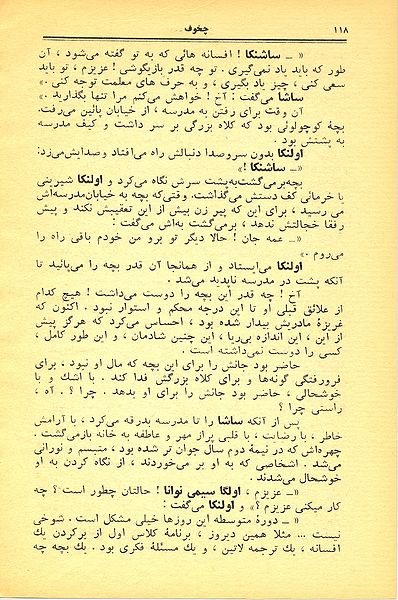 ۱۱۸
چخوف
« ــ ساشنکا ! افسانه هائی که به تو گفته می‌شود ، آن
طور که باید یاد نمی‌گیری . تو چه قدر بازیگوشی ! عزیزم ، تو باید
سعی کنی ، چیز یاد بگیری ، و به حرف های معلمت توجه کنی .»
ساشا می‌گفت : آخ ! خواهش می‌کنم مرا تنها بگذارید .»
آن وقت برای رفتن به مدرسه ، از خیابان پائین می‌رفت.
بچهٔ کوچولوئی بود که کلاه بزرگی بر سر داشت و کیف مدرسه
به پشتش بود .
اولنکا بدون سروصدا دنبالش راه می‌افتاد وصدایش می‌زد:
« ــ ساشنکا !»
بچه‌برمی‌گشت‌به‌پشت سرش نگاه می‌کرد و اولنکا شیرینی
یا خرمائی کف دستش می‌گذاشت. وقتی‌که بچه به خیابان‌مدرسه‌اش
می رسید ، برای این که پیر زن بیش از این تعقیبش نکند و پیش
رفقا خجالتش ندهد ، برمی‌گشت به‌اش می‌گفت :
« ــ عمه جان ! حالا دیگر تو برو من خودم باقی راه را
می‌روم .»
اولنکا می‌ایستاد و از همانجا آن قدر بچه را می‌پائید تا
آنکه پشت در مدرسه ناپدید می‌شد .
آخ ! چه قدر این بچه را دوست می‌داشت ! هیچ کدام
از علائق قبلی او تا این درجه محکم و استوار نبود . اکنون که
غریزهٔ مادریش بیدار شده بود ، احساس می‌کرد که هرگز پیش
از این ، این اندازه بی‌ریا ، این چنین شادمان ، و این طور کامل ،
کسی را دوست نمی‌داشته است .
حاضر بود جانش را برای این بچه که مال او نبود ، برای
فرورفتگی گونه‌ها و برای کلاه بزرگش فدا کند . با اشك و با
خوشحالی ، حاضر بود جانش را برای او بدهد . چرا ؟ . آه ،
راستی چرا ؟
پس از آنکه ساشا را تا مدرسه بدرقه می‌کرد ، با آرامش
خاطر ، با رضایت ، با قلبی پراز مهر و عاطفه به خانه بازمی‌گشت .
چهره‌اش که در نیمهٔ دوم سال جوان تر شده بود ، متبسم و نورانی
می‌شد . اشخاصی که به او بر می‌خوردند ، از نگاه کردن به او
خوشحال می‌شدند .
« ــ عزیزم ، اولگا سیمی نوانا ! حالتان چطور است؟ چه
کار میکنی عزیزم ؟» و اولنکا می‌گفت :
« ــ دورهٔ متوسطه این روزها خیلی مشکل است . شوخی
نیست ... مثلا همین دیروز ، برنامهٔ کلاس اول از برکردن یك
افسانه ، یك ترجمه لاتین ، و یك مسئلهٔ فکری بود . یك بچه چه